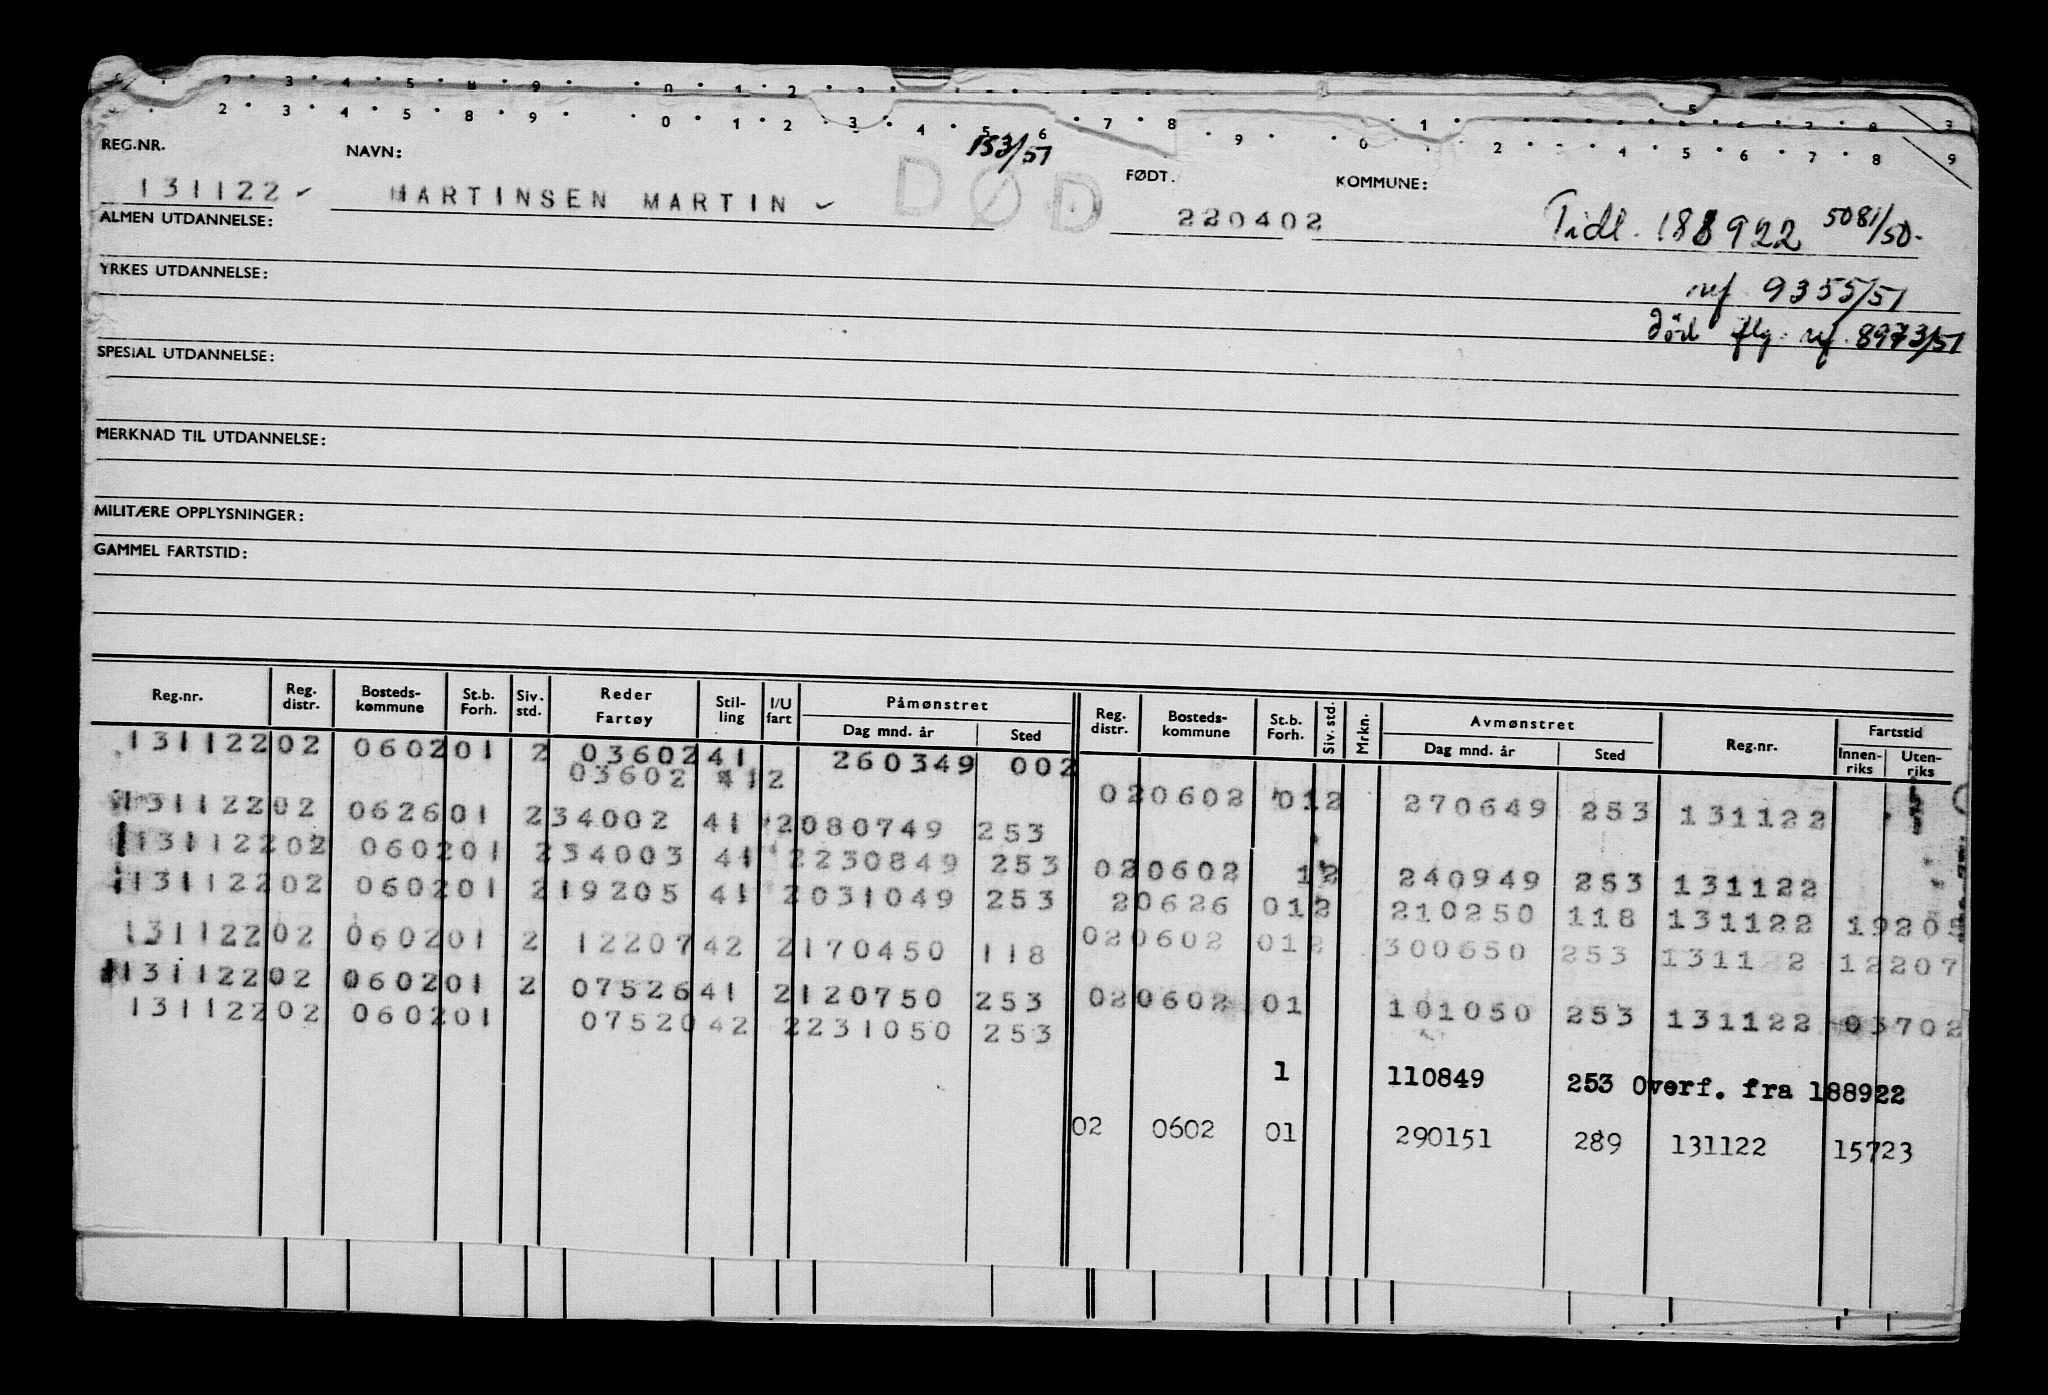 2 3 4 5 8 9 0 1 2 3
2 3 4 5 8 9 0 1 2 3 4 5 6 7 8 9 0 1 2 3 4 5 6 7 8 9
REG.NR. NAVN: 153/51 FØDT. KOMMUNE:
131122 MARTINSEN MARTIN DØD 220402 Tidl. 188922 5081/50.
ALMEN UTDANNELSE:
YRKES UTDANNELSE: ref 9355/51
død flg. ref. 8973/51
SPESIAL UTDANNELSE:
MERKNAD TIL UTDANNELSE:
MILITÆRE OPPLYSNINGER:
GAMMEL FARTSTID:
Reg.nr. Reg. distr. Bosteds-kommune St.b. Forh. Siv. std. Reder Fartøy Stil-ling I/U fart Påmønstret Dag mnd. år Sted Reg. distr. Bosteds-kommune St.b. Forh. Siv. std. Mrkn. Avmønstret Dag mnd. år Sted Reg.nr. Fartstid Innen-riks Uten-riks
131122 02 0602 01 2 03602 41 260349 002
03602 41 2 02 0602 01 2 270649 253 131122
131122 02 0626 01 2 34002 41 2 080749 253
131122 02 0602 01 2 34003 41 2 230849 253 02 0602 1 2 240949 253 131122
131122 02 0602 01 2 19205 41 2 031049 253 2 0626 01 2 210250 118 131122 19205
131122 02 0602 01 2 12207 42 2 170450 118 02 0602 01 2 300650 253 131122 12207
131122 02 0602 01 2 07526 41 2 120750 253 02 0602 01 101050 253 131122 03702
131122 02 0602 01 07520 42 2 231050 253
1 110849 253 Overf. fra 188922
02 0602 01 290151 289 131122 15723